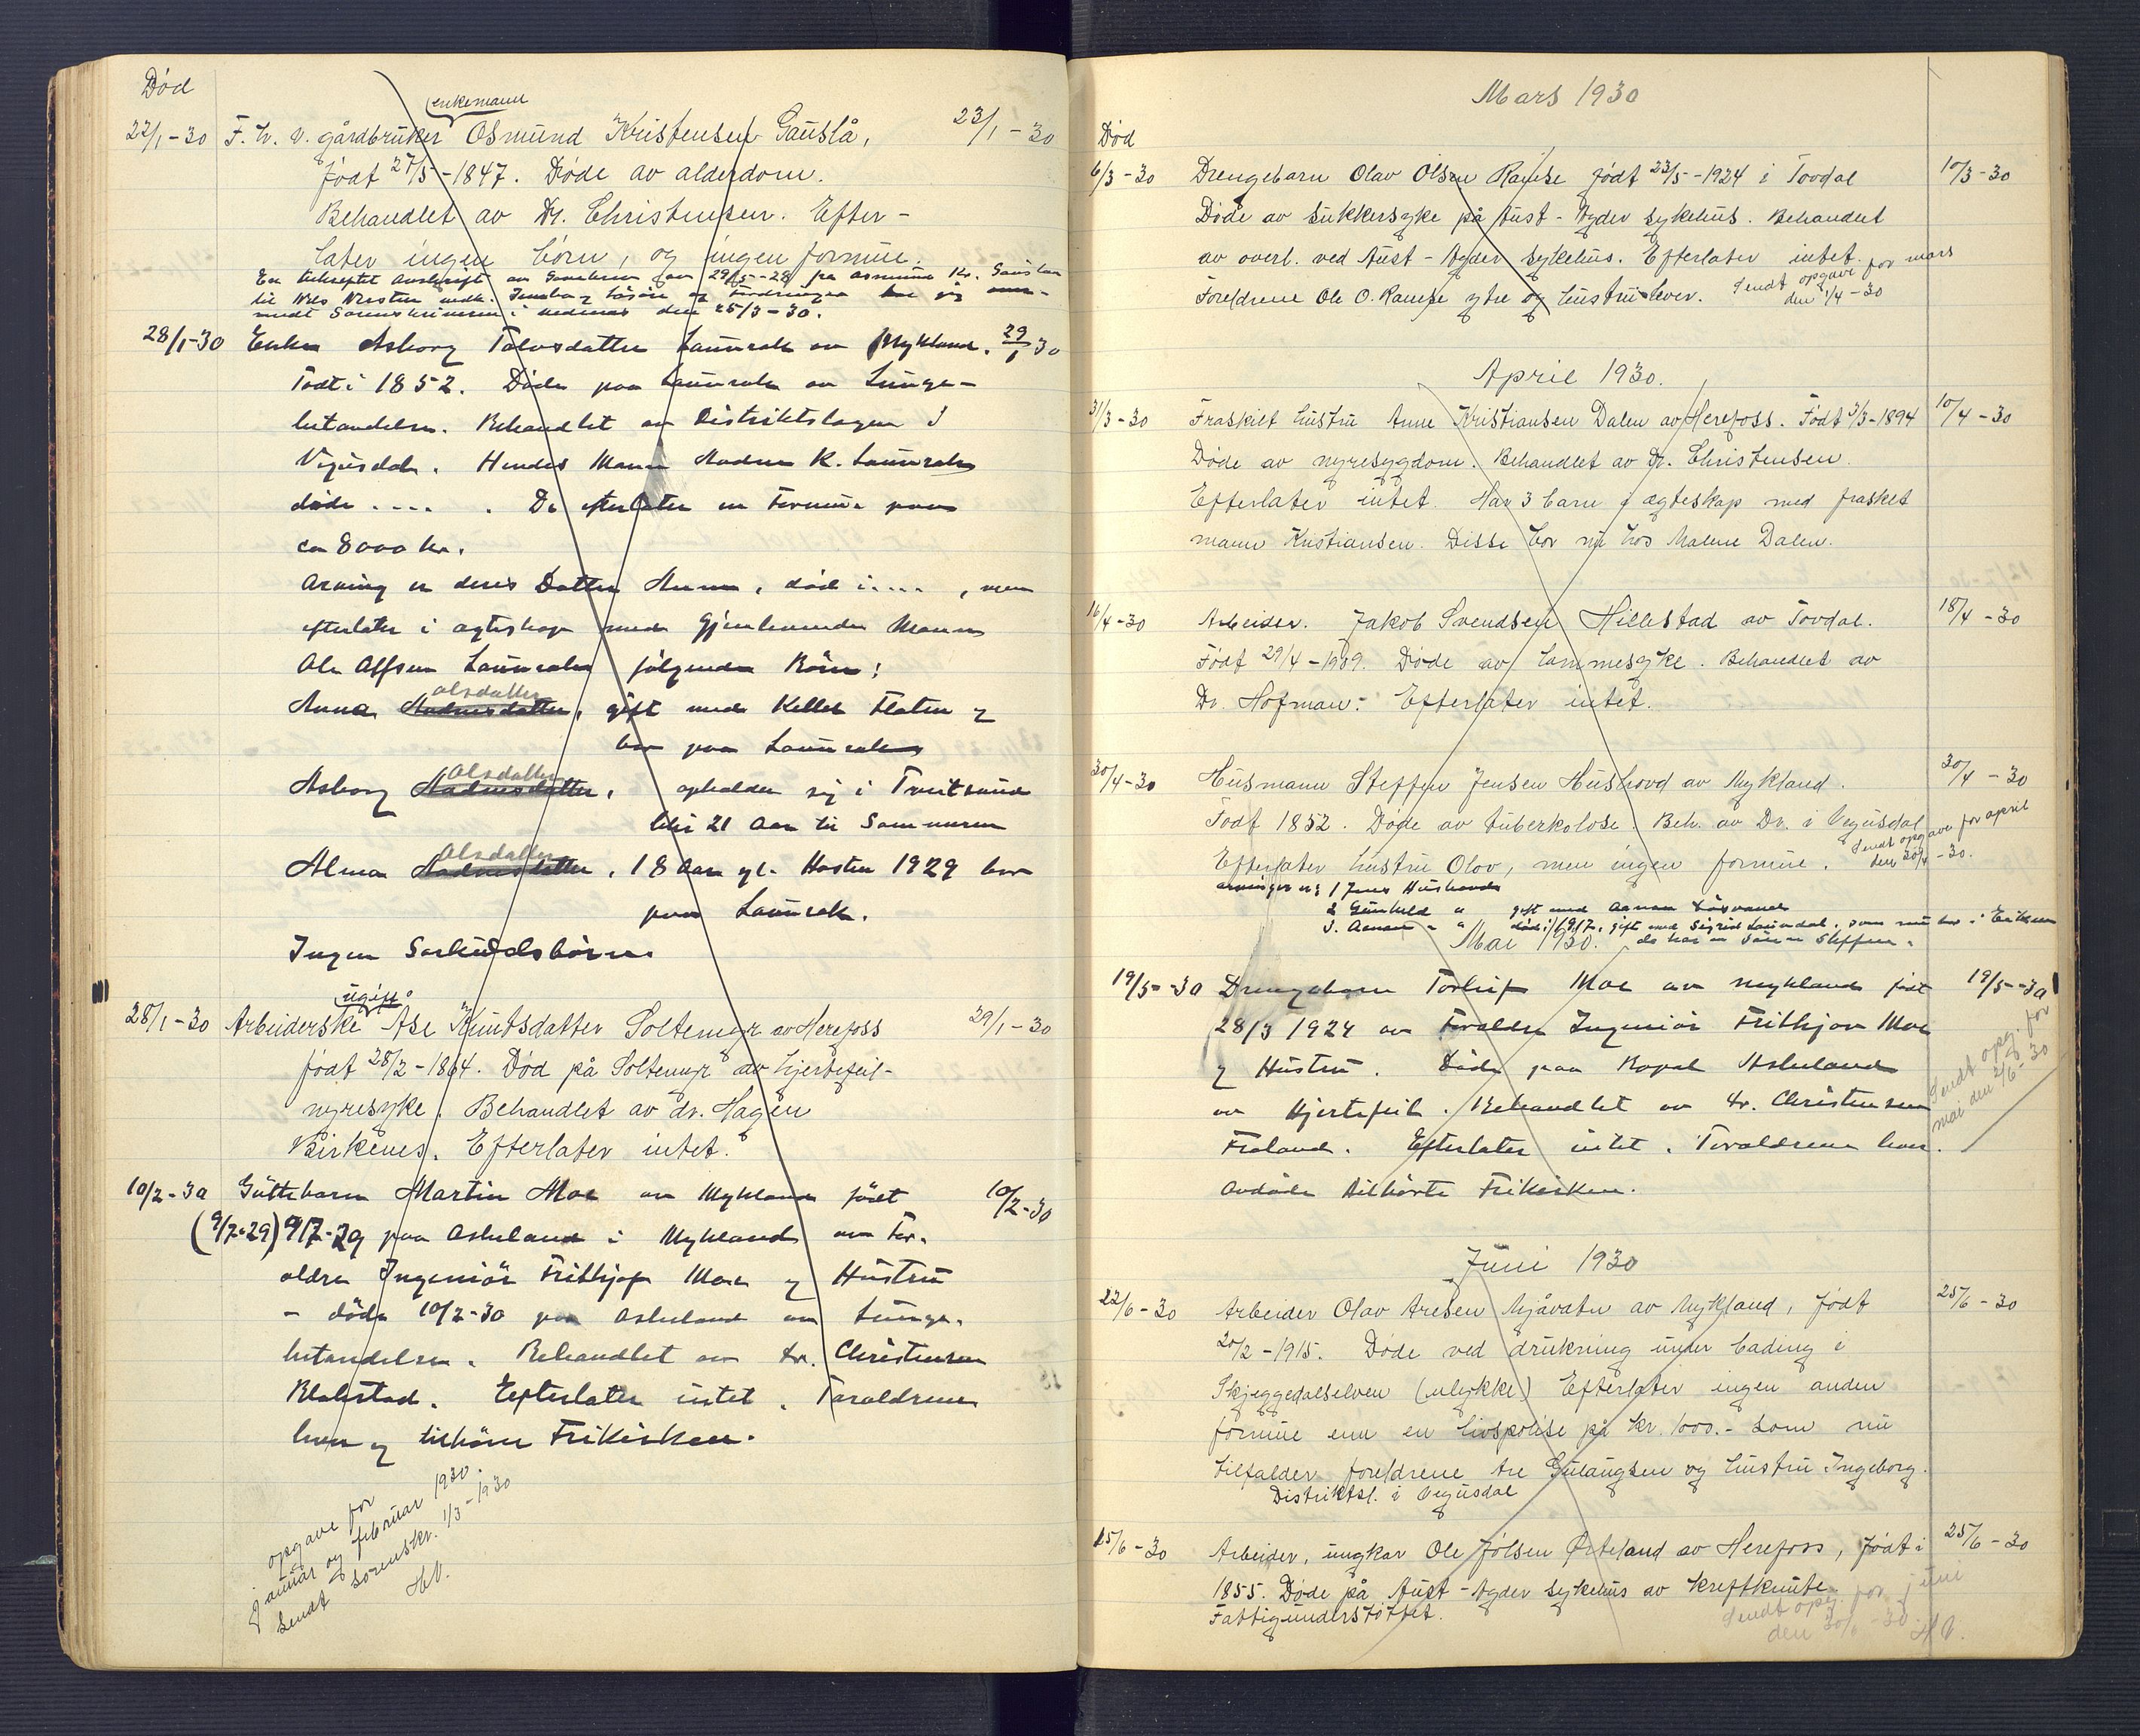 Død
enkemann
22/1-30 F. h. v. gårdbruker Osmund Kristensen Gauslå, 23/1-30
født 27/5-1847. Døde av alderdom.
Behandlet av Dr. Christensen. Efter-
later ingen børn, og ingen formue.
En bekreftet avskrift av Gavebrev av 29/5-28 fra Osmund Kr. Gauslaa
til Nils
den 25/3-30.
28/1-30 Enke Asborg Talvsdatter Laurak av Mykland. 29/1 30
Født i 1852. Døde paa Laurak av Lunge-
betændelse. Behandlet av Distriktslægen i
Vegusdal. Hendes Mann Aadne K. Laurak
døde .... . De efterlater en Formue paa
ca 8000 kr.
Arving er deres Datter Anne, død i ...., men
efterlater i egteskap med Gjenlevende Mann
Ole Alfsen Laurak følgende Børn:
Anna Aadnesdatter Olsdatter, gift med Kellek Flaten og
bor paa Laurak
Asborg Aadnesdatter Olsdatter, opholder sig i Truitsund
blir 21 Aar til Sommeren
Alma Aadnesdatter Olsdatter, 18 Aar gl. Høsten 1929 bor
paa Laurak.
Ingen Særkuldsbørn.
ugift
28/1-30 Arbeiderske Åse Knutsdatter Soltemyr av Herefoss 29/1-30
født 28/2-1864. Død på Soltemyr av hjertefeil-
nyresyke. Behandlet av dr. Hagen
Birkenes. Efterlater intet.
10/2-30 Guttebarn Martin Moe av Mykland født 10/2-30
(9/7-29) 9/7-29 paa Askeland i Mykland av For-
ældre Ingeniør Frithjof Moe og Hustru
- døde 10/2-30 paa Askeland av Lunge-
betændelse. Behandlet av Dr. Christensen
Blakstad. Efterlater intet. Forældrene
lever og tilhører Frikirken.
opgave for
januar og februar 1930.
Sendt sorenskr. 1/3-1930
HV.
Mars 1930
Død
6/3-30 Drengebarn Olav Olsen Ramse født 23/5-1924 i Tovdal 10/3-30
Døde av sukkersyke på Aust-Agder sykehus. Behandlet
av overl. ved Aust-Agder sykehus. Efterlater intet.
Foreldrene Ole O. Ramse ytre og hustru lever. Sendt opgave for mars
den 1/4-30
April 1930.
31/3-30 Fraskilt hustru Anne Kristiansen Dalen av Herefoss. Født 3/3-1894 10/4-30
Døde av nyresygdom. Behandlet av Dr. Christensen.
Efterlater intet. Har 3 barn i ægteskap med frasket
mann Kristiansen. Disse bor nu hos Malene Dalen.
16/4-30 Arbeider. Jakob Svendsen Hillestad av Tovdal. 18/4-30
Født 29/4-1909. Døde av lammesyke. Behandlet av
Dr. Hofman. Efterlater intet.
30/4-30 Husmann Steffen Jensen Hushovd av Mykland. 30/4-30
Født 1852. Døde av tuberkolose. Beh. av Dr. i Vegusdal
Efterlater hustru Olov, men ingen formue. Sendt opgave for april
den 30/4-30.
Arvinger er: 1 Jens Hushovd
2 Gunhild " gift med Aanon
3. Aanon " " død i 1917, gift med Sigrid Laundal, som nu bor i
Mai 1930. de har en Søn Steffen.
19/5-30 Drengebarn Torleif Moe av Mykland født 19/5-30
28/3 1924 av Forældre Ingeniør Frithjov Moe
og Hustru. Døde paa Askeland
av Hjertefeil. Behandlet av Dr. Christensen
Froland. Efterlater intet. Forældrene lever.
Avdøde tilhørte Frikirken.
Sendt opg. for
mai den 2/6-30
Juni 1930
22/6-30 Arbeider Olav Aresen Mjåvatn av Mykland, født 25/6-30
20/2-1915. Døde ved drukning under bading i
Skjeggedalselven (ulykke) Efterlater ingen anden
formue enn en livspolise på kr. 1000.- som nu
tilfalder foreldrene Are Gulaugsen og hustru Ingeborg.
Distriktsl. i Vegusdal
15/6-30 Arbeider, ungkar Ole Jølsen Ørteland av Herefoss, født i 25/6-30
1855. Døde på Aust-Agder sykehus av kreftknute
Fattigunderstøttet.
Sendt opg. for juni
den 30/6-30. HV.